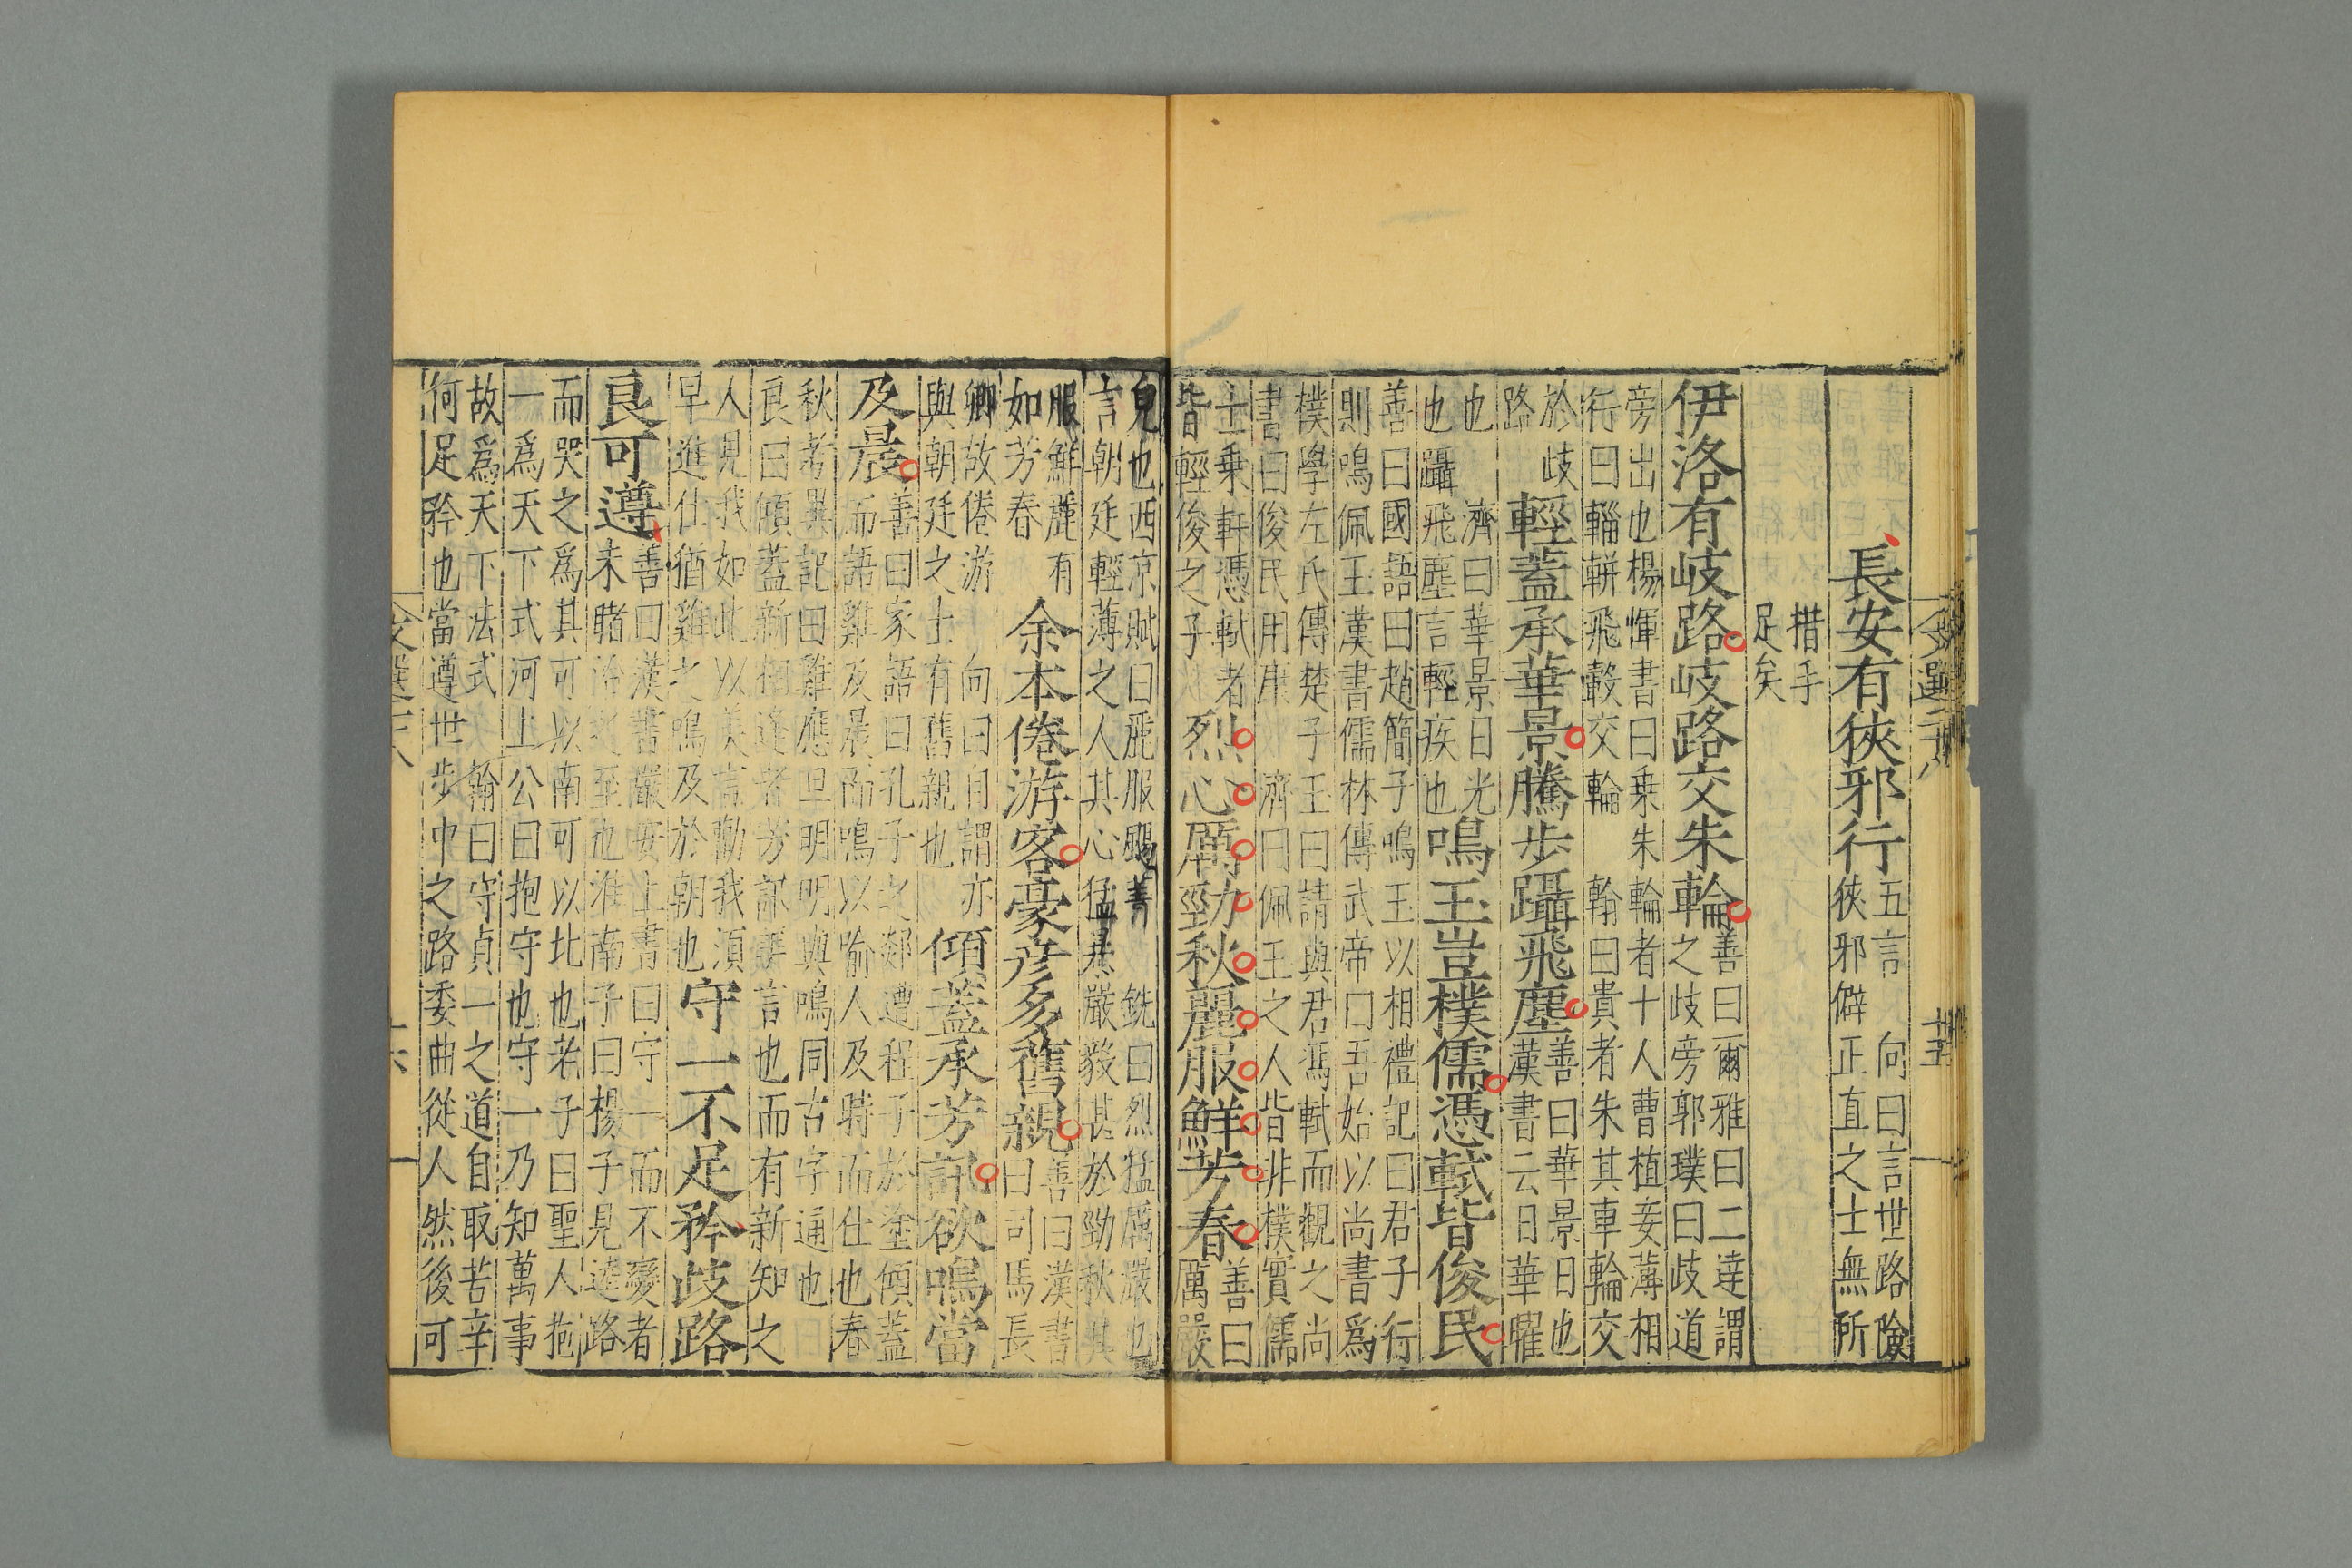 文選二十八 廿五
長安有狹邪行
五言 向曰言世路險
狹邪邪僻正直之士無所
措手
足矣
伊洛有岐路岐路交朱輪
善曰爾雅曰二逹謂
之岐旁郭璞曰岐道
旁出也楊惲書曰乗朱輪者十人曹植妾薄相
行曰輜軿飛轂交輪 翰曰貴者朱其車輪交
於岐
路
輕蓋承華景騰步躡飛塵
善曰華景日也
漢書云日華曜
也 濟曰華景日光
也躡飛塵言輕疾也
鳴玉豈樸儒憑軾皆俊民
善曰國語曰趙簡子鳴玉以相禮記曰君子行
則鳴佩玉漢書儒林傳武帝曰吾始以尚書爲
樸學左氏傳楚子玉曰請與君馮軾而觀之尚
書曰俊民用康 濟曰佩玉之人皆非樸實儒
士乗軒憑軾者
皆輕俊之子
烈心厲勁秋麗服鮮芳春
善曰
厲嚴
皃也西京賦曰麗服颺菁 銑曰烈猛厲嚴也
言朝廷輕薄之人其心猛暴嚴毅甚於勁秋其
服鮮麗有
如芳春
余本倦游客豪彦多舊親
善曰漢書
曰司馬長
卿故倦游 向曰自謂亦
與朝廷之士有舊親也
傾蓋承芳訊欲鳴當
及晨
善曰家語曰孔子之郯遭程子於塗傾蓋
而語雞及晨而鳴以喻人及時而仕也春
秋考異記曰雞應旦明明與鳴同古字通也
良曰傾蓋新相逢者芳訊言也而有新知之
人見我如此以美言勸我須
早進仕猶雞之鳴及於朝也
守一不足矜岐路
良可遵
善曰漢書嚴安上書曰守一而不變者
未睹治之至也淮南子曰楊子見逵路
而哭之爲其可以南可以北也老子曰聖人抱
一爲天下式河上公曰抱守也守一乃知萬事
故爲天下法式 翰曰守貞一之道自取苦辛
何足矜也當遵世步中之路委曲從人然後可